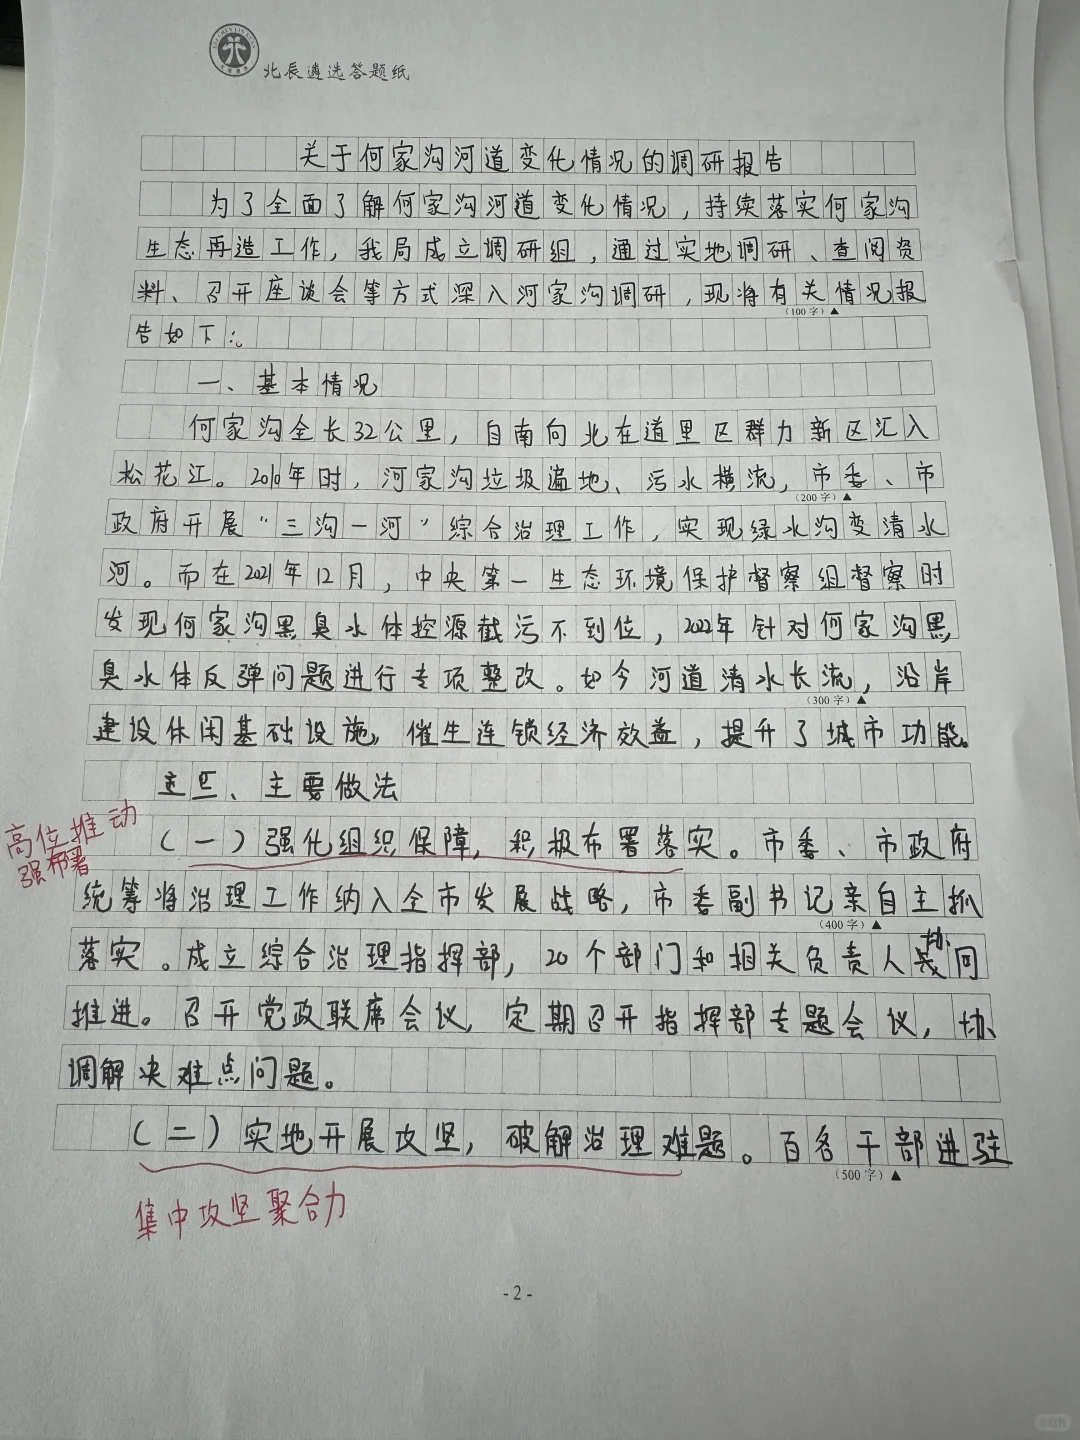 北辰遴选答题纸
关于何家沟河道变化情况的调研报告
为了全面了解何家沟河道变化情况，持续落实何家沟
生态再造工作，我局成立调研组，通过实地调研、查阅资
料、召开座谈会等方式深入河家沟调研，现将有关情况报
(100字)▲
告如下：
一、基本情况
何家沟全长32公里，自南向北在道里区群力新区汇入
松花江。2010年时，河家沟垃圾遍地、污水横流，市委、市
(200字)▲
政府开展“三沟一河”综合治理工作，实现绿水沟变清水
河。而在2021年12月，中央第一生态环境保护督察组督察时
发现何家沟黑臭水体控源截污不到位，2022年针对何家沟黑
臭水体反弹问题进行专项整改。如今河道清水长流，沿岸
(300字)▲
建设休闲基础设施，催生连锁经济效益，提升了城市功能。
二、主要做法
高位推动
强部署
（一）强化组织保障，积极布署落实。市委、市政府
统筹将治理工作纳入全市发展战略，市委副书记亲自主抓
(400字)▲
落实。成立综合治理指挥部，20个部门和相关负责人协同
推进。召开党政联席会议，定期召开指挥部专题会议，协
调解决难点问题。
（二）实地开展攻坚，破解治理难题。百名干部进驻
(500字)▲
集中攻坚聚合力
-2-